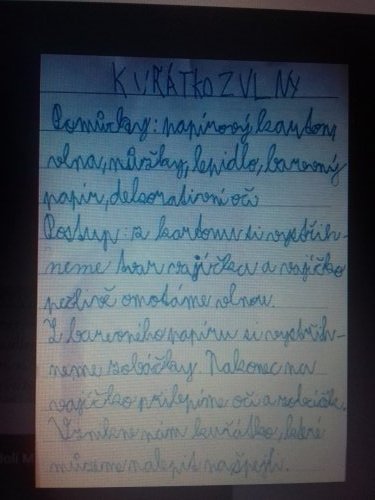 KUŘÁTKO Z VLNY
Pomůcky: papírový karton,
vlna, nůžky, lepidlo, barevný
papír, dekorativní oči
Postup: z kartonu si vystřih-
neme tvar vajíčka a vajíčko
pečlivě omotáme vlnou.
Z barevného papíru si vystřih-
neme zobáčky. Nakonec na
vajíčko přilepíme oči a zobáček.
Vznikne nám kuřátko, které
můžeme nalepit na špejli.